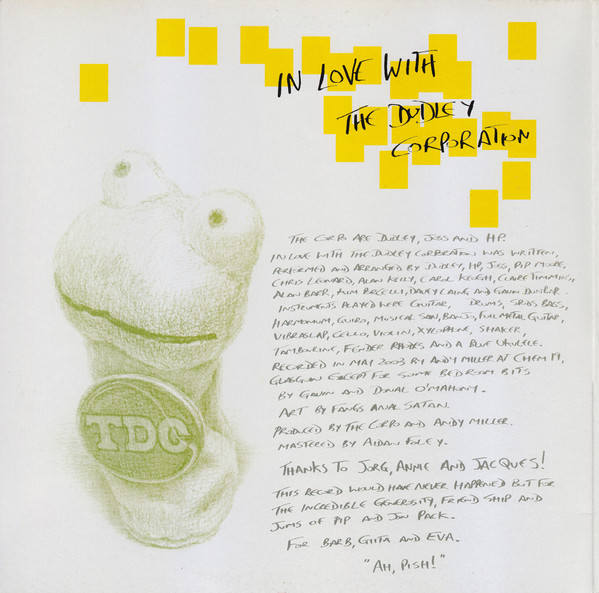 IN LOVE WITH
THE DUDLEY
CORPORATION
THE CORPO ARE DUDLEY, JOSS AND HP.
IN LOVE WITH THE DUDLEY CORPORATION WAS WRITTEN,
PERFORMED AND ARRANGED BY DUDLEY, HP, JOSS, PIP MOORE,
CHRIS LEONARD, ALAN KELLY, CAROL KEOGH, CLAIRE TIMMINS,
ALAN BARR, KIM DAVEY LAING AND GAVIN DUNLOP.
INSTRUMENTS PLAYED WERE GUITAR, DRUMS, BASS,
HARMONIUM, GUIRO, MUSICAL SAW, BANJO, FULL METAL GUITAR,
VIBRASLAP, CELLO, VIOLIN, XYLOPHONE, SHAKER,
TAMBOURINE, FENDER RHODES AND A BLUE UKULELE.
RECORDED IN MAY 2003 BY ANDY MILLER AT CHEM 19,
GLASGOW EXCEPT FOR SOME BEDROOM BITS
BY GAVIN AND DONAL O'MAHONY.
ART BY FANGS ANAL SATAN.
PRODUCED BY THE CORPO AND ANDY MILLER.
MASTERED BY AIDAN FOLEY.
THANKS TO JORG, ANNIE AND JACQUES!
THIS RECORD WOULD HAVE NEVER HAPPENED BUT FOR
THE INCREDIBLE GENEROSITY, FRIENDSHIP AND
JUMS OF PIP AND JON PACK.
FOR BARB, GITTA AND EVA.
"AH, PISH!"
TDC